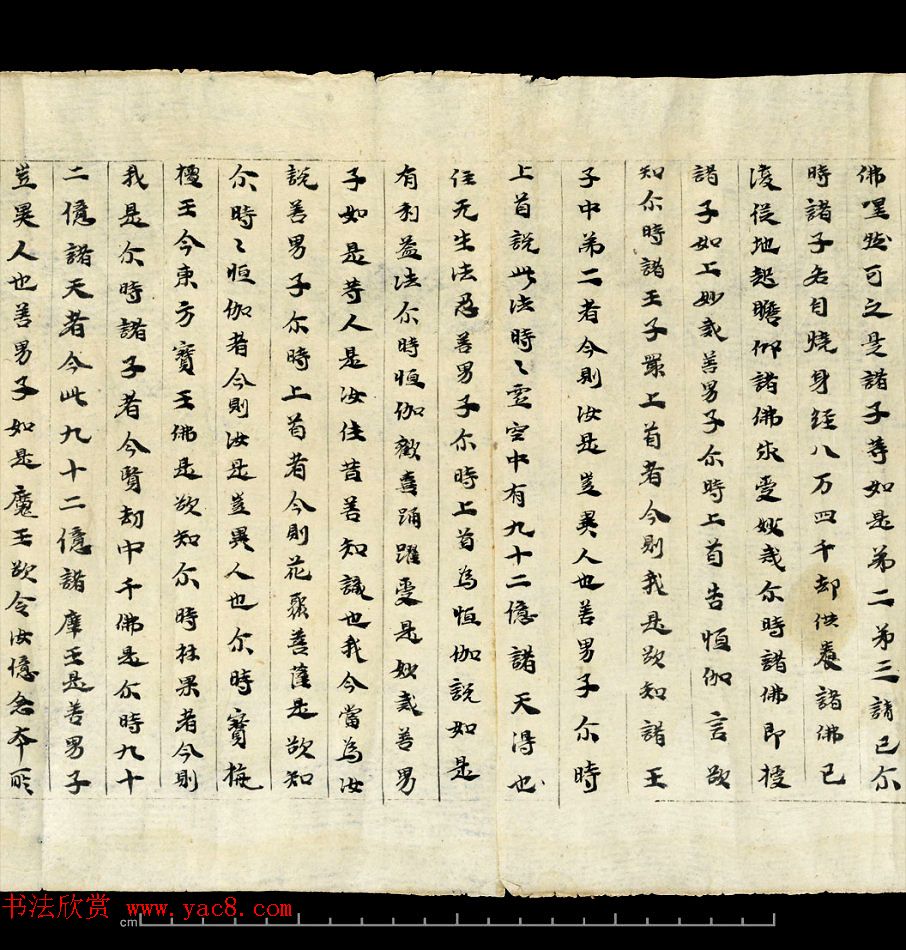 佛嘿然可之是諸子等如是弟二弟三請已尒
時諸子各自燒身經八万四千却供養諸佛已
復從地起瞻仰諸佛求受妙戒尒時諸佛即授
諸子如上妙戒善男子尒時上首告恒伽言欲
知尒時諸王子冣上首者今則我是欲知諸王
子中弟二者今則汝是豈異人也善男子尒時
上首說此法時〻虛空中有九十二億諸天得也
住无生法忍善男子尒時上首為恒伽說如是
有利益法尒時恒伽歡喜踊躍受是妙戒善男
子如是等人是汝往昔善知識也我今當為汝
說善男子尒時上首者今則花聚菩薩是欲知
尒時〻恒伽者今則汝是豈異人也尒時寶梅
檀王今東方寶王佛是欲知尒時林果者今則
我是尒時諸子者今賢劫中千佛是尒時九十
二億諸天者今此九十二億諸摩王是善男子
豈異人也善男子如是魔王欲令汝憶念本所
书法欣赏 www.yac8.com
cm